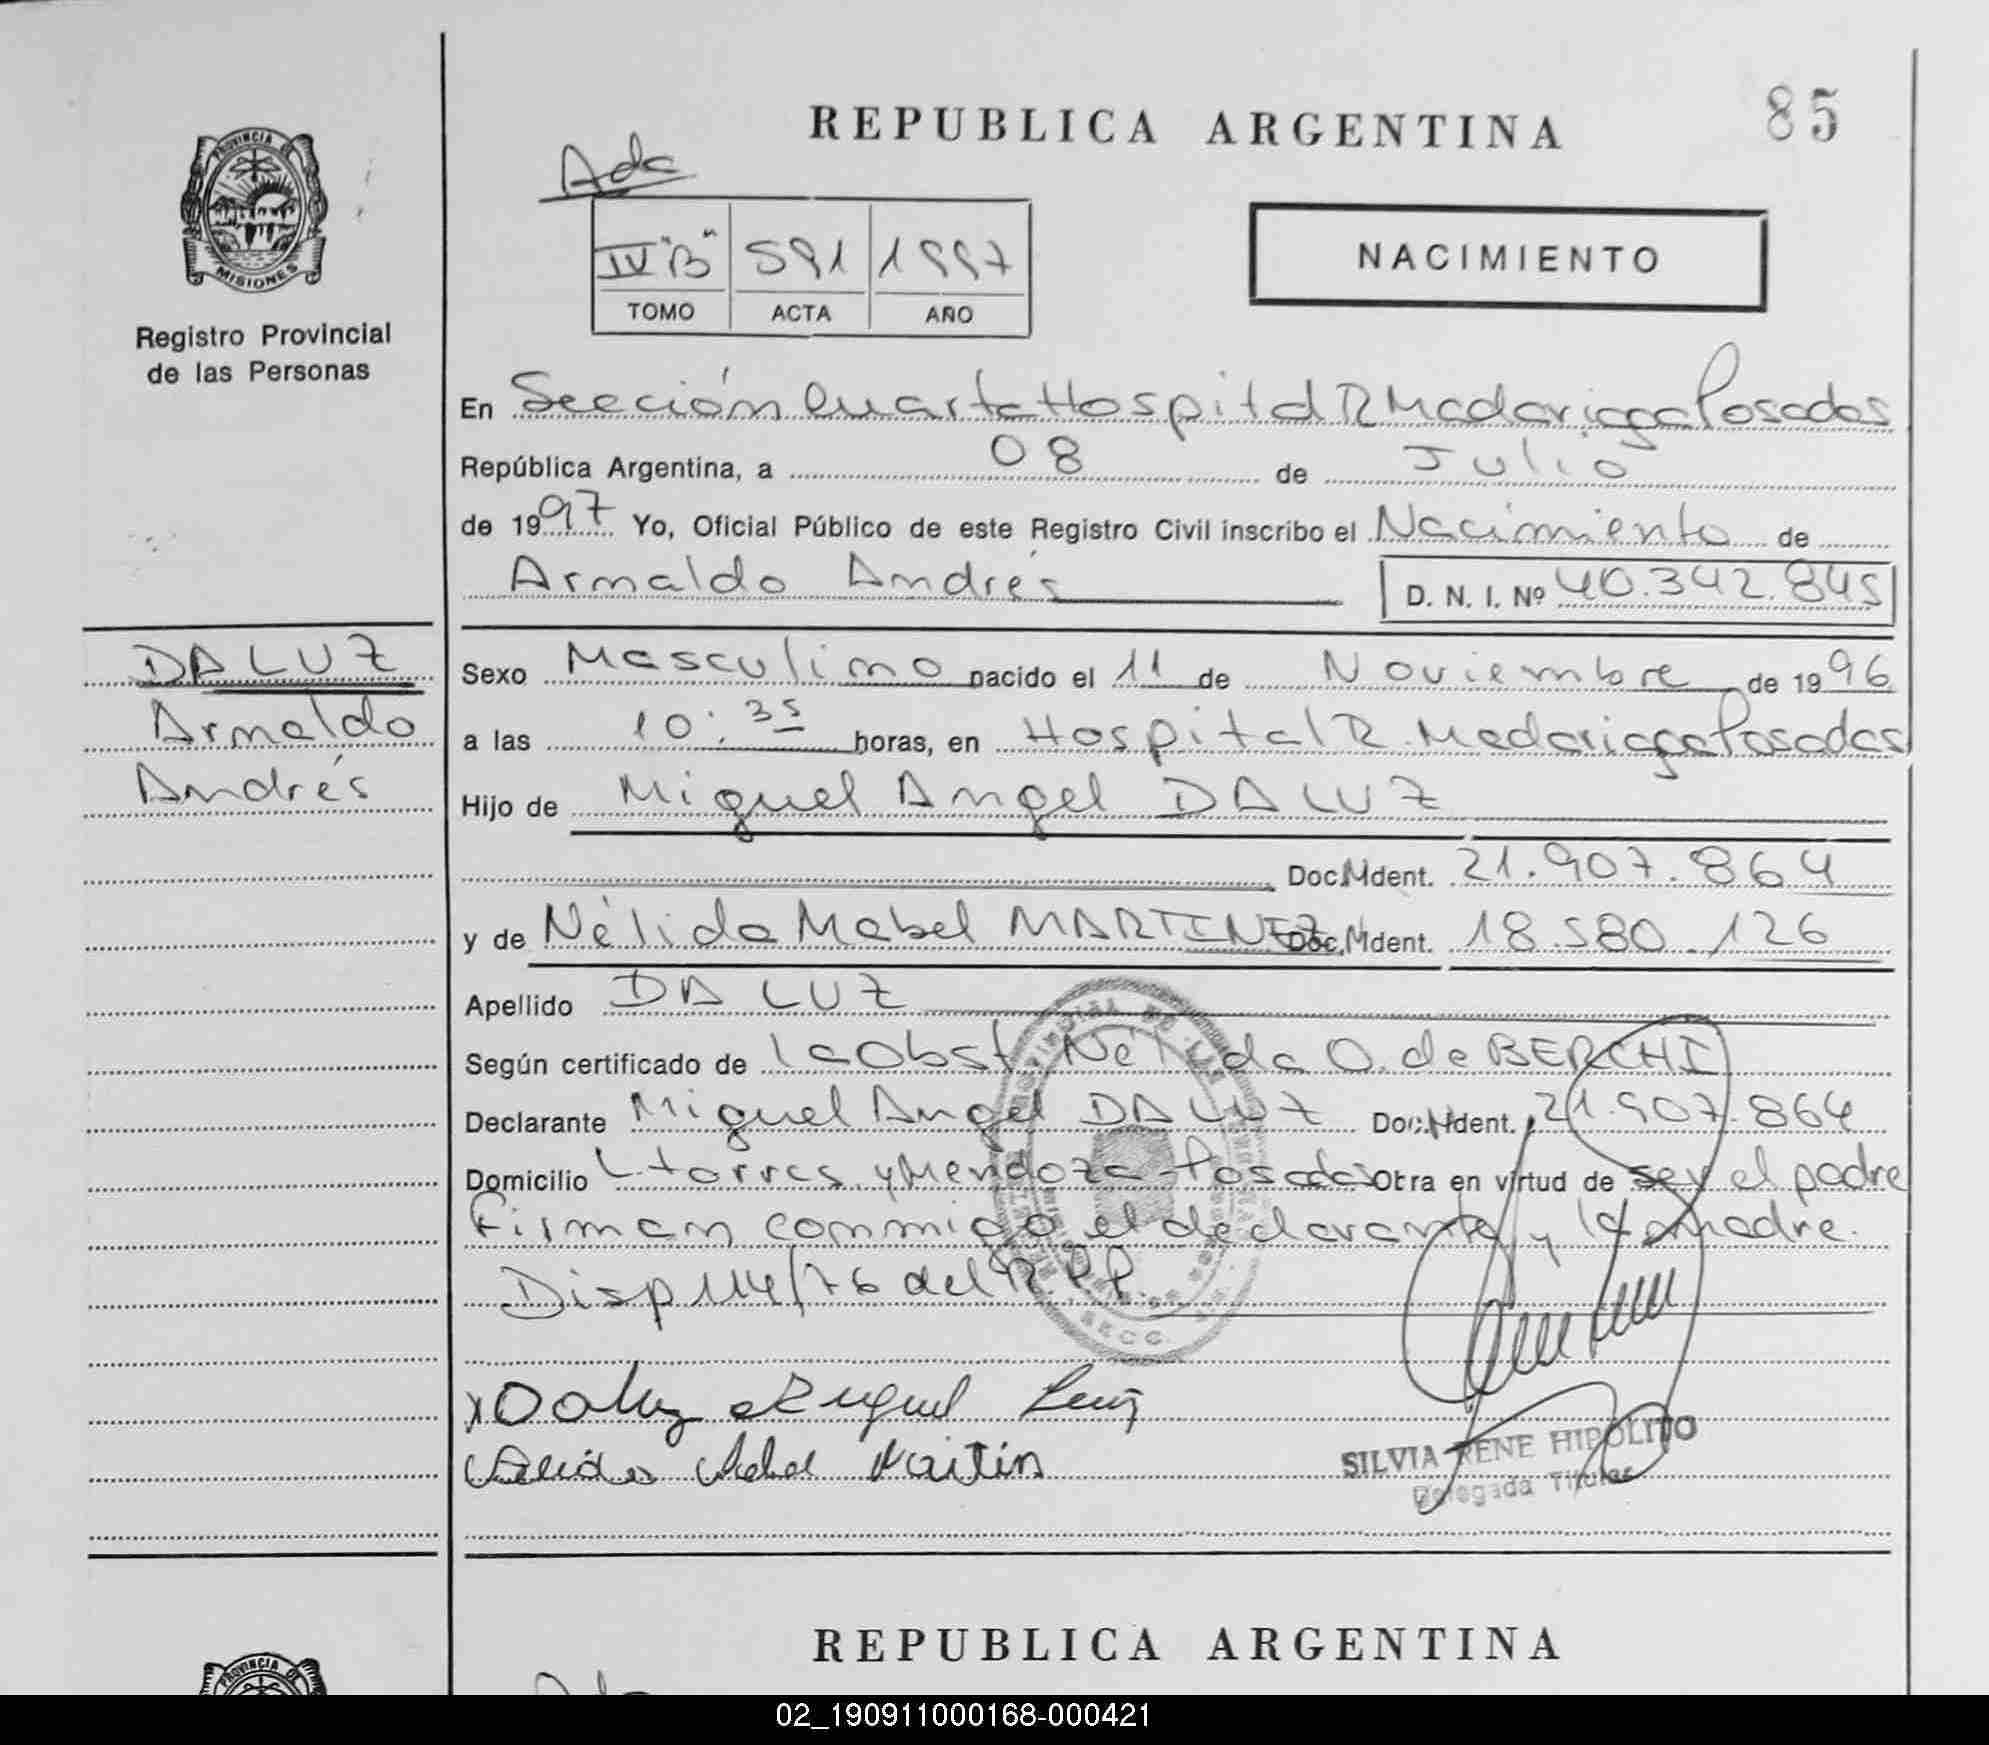 85
REPUBLICA ARGENTINA
PROVINCIA DE
MISIONES
Registro Provincial
de las Personas
Ada
IV "B" 591 1997
TOMO ACTA AÑO
NACIMIENTO
En Sección Cuarta Hospital R Madariaga Posadas
República Argentina, a 08 de Julio
de 1997 Yo, Oficial Público de este Registro Civil inscribo el Nacimiento de
Arnaldo Andrés D. N. I. Nº 40.342.845
DA LUZ
Arnaldo
Andrés
Sexo Masculino nacido el 11 de Noviembre de 1996
a las 10:35 horas, en Hospital R. Madariaga Posadas
Hijo de Miguel Angel DA LUZ
Doc. Ident. 21.907.864
y de Nélida Mabel MARTINEZ Doc. Ident. 18.580.126
Apellido DA LUZ
Según certificado de la Obst Nélida O. de BERCHI
Declarante Miguel Angel DA LUZ Doc. Ident. 21.907.864
Domicilio L. torres y Mendoza Posadas Obra en virtud de ser el padre
Firman conmigo el declarante y la madre.
Disp 114/76 del R.P.P.
SECC
SILVIA RENE HIPOLITO
Delegada Titular
REPUBLICA ARGENTINA
PROVINCIA DE
02_190911000168-000421